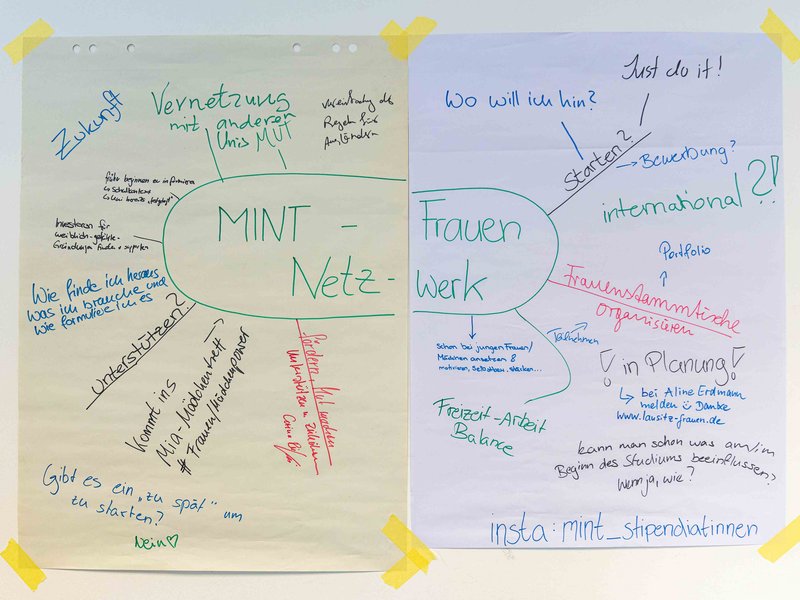 Zukunft
Vernetzung
mit anderen
Unis MUT
Regeln für
Ausländern
früh beginnen zu
Investoren für
weiblich-geführte
Gründungen finden + supporten
Wie finde ich heraus
was ich brauche und
wie formuliere ich es
Unterstützen?
Kommt ins
Mia-Mädchentreff
# Frauen/Mädchenpower
fördern, Mut machen
unterstützen u. zuhören
MINT - Frauen
Netz- werk
Gibt es ein „zu spät" um
zu starten?
Nein♡
Just do it!
Wo will ich hin?
Starten?
→ Bewerbung?
international?!
Portfolio
Frauenstammtische
organisieren
Teilnehmen
Schon bei jungen Frauen/
Mädchen ansetzen &
motivieren, stärken...
! in Planung!
↳ bei Aline Erdmann
melden ☺ Danke
www.lausitz-frauen.de
Freizeit-Arbeit
Balance
kann man schon was am/im
Beginn des Studiums beeinflussen,
Wenn ja, wie?
insta: mint_stipendiatinnen